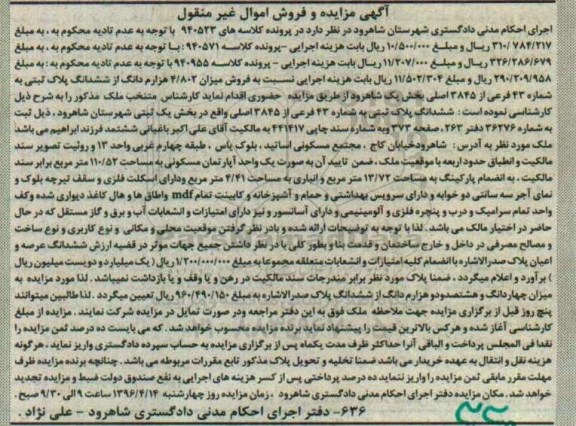 آگهی مزایده و فروش اموال غیر منقول
اجرای احکام مدنی دادگستری شهرستان شاهرود در نظر دارد در پرونده کلاسه های ۹۴۰۵۲۳ با توجه به عدم تادیه محکوم به ، به مبلغ
۳۱۰/۷۸۴/۲۱۷ ریال و مبلغ ۱۰/۵۰۰/۰۰۰ ریال بابت هزینه اجرایی -پرونده کلاسه ۹۴۰۵۷۱: با توجه به عدم تادیه محکوم به ، به مبلغ
۳۲۶/۲۸۶/۶۷۹ ریال و مبلغ ۱۱/۲۰۷/۰۰۰ ریال بابت هزینه اجرایی - پرونده کلاسه ۹۴۰۹۵۵ با توجه به عدم تادیه محکوم به ، به مبلغ
۲۹۰/۲۰۹/۹۵۸ ریال و مبلغ ۱۱/۵۰۲/۳۰۴ ریال بابت هزینه اجرایی نسبت به فروش میزان ۴/۸۰۲ هزارم دانگ از ششدانگ پلاک ثبتی به
شماره ۴۳ فرعی از ۳۸۴۵ اصلی بخش یک شاهرود از طریق مزایده حضوری اقدام نماید کارشناس منتخب ملک مذکور را به شرح ذیل
کارشناسی نموده است : ششدانگ پلاک ثبتی به شماره ۴۳ فرعی از ۳۸۴۵ اصلی واقع در بخش یک ثبتی شهرستان شاهرود ، ذیل ثبت
به شماره ۳۶۲۷۶ دفتر ۲۶۳، صفحه ۳۷۳ وبه شماره سند چاپی ۴۴۱۴۱۷ به مالکیت آقای علی اکبر باغبانی ششتمد فرزند ابراهیم می باشد
ملک مورد نظر به آدرس: شاهرودخیابان کاج ، مجتمع مسکونی اساتید ، بلوک یاس ، طبقه چهارم غربی واحد ۱۳ و روئیت تصویر سند
مالکیت و انطباق حدود اربعه با موقعیت ملک ، ضمن تایید آن به صورت یک واحد آپارتمان مسکونی به مساحت ۱۱۰/۵۲ متر مربع برابر سند
مالکیت ، به انضمام پارکینگ به مساحت ۱۳/۷۲ متر مربع و انباری به مساحت ۴/۴۱ متر مربع ودارای اسکلت فلزی و سقف تیرچه بلوک و
نمای آجر سه سانتی دو خوابه و دارای سرویس بهداشتی و حمام و آشپزخانه و کابینت تمام mdf واطاق ها و هال کاغذ دیواری شده وکف
واحد تمام سرامیک و درب و پنجره فلزی و آلومینیمی و دارای آسانسور و نیز دارای امتیازات و انشعابات آب و برق و گاز مستقل که در حال
حاضر در اختیار مالک می باشد . لذا با توجه به توضیحات ارائه شده و بادر نظر گرفتن موقعیت محلی و مکانی و نوع کاربری و نوع ساخت
و مصالح مصرفی در داخل و خارج ساختمان و قدمت بنا و بطور کلی با در نظر داشتن جمیع جهات موثر در قضیه ارزش ششدانگ عرصه و
اعیان پلاک صدرالاشاره با انضمام کلیه امتیازات و انشعابات متعلقه مجموعا به مبلغ ۱/۲۰۰/۰۰۰/۰۰۰ ریال ( یک میلیارد و دویست میلیون ریال
) برآورد و اعلام میگردد ، ضمنا پلاک مورد نظر برابر مندرجات سند مالکیت در رهن و یا وقف و یا بازداشت نمیباشد. لذا مورد مزایده به
میزان چهاردانگ و هشتصدودو هزارم دانگ از ششدانگ پلاک صدرالاشاره به مبلغ ۹۶۰/۴۹۰/۱۵۰ ریال تعیین میگردد . لذا طالبین میتوانند
پنج روز قبل از برگزاری مزایده جهت ملاحظه ملک فوق به این دفتر مراجعه ودر صورت تمایل در مزایده شرکت نمایند . مزایده از مبلغ
کارشناسی آغاز شده و هرکس بالاترین قیمت را پیشنهاد نماید برنده مزایده محسوب خواهد شد. که می بایست ده درصد ثمن مزایده را
نقدا فی المجلس پرداخت و الباقی آنرا حداکثر ظرف مدت یکماه پس از برگزاری مزایده به حساب سپرده دادگستری واریز نماید ، هرگونه
هزینه نقل و انتقال به عهده خریدار می باشد ضمنا تخلیه و تحویل پلاک مذکور تابع مقررات مربوطه می باشد . چنانچه برنده مزایده ظرف
مهلت مقرر مابقی ثمن مزایده را واریز ننماید ده درصد پرداختی پس از کسر هزینه های اجرایی به نفع صندوق دولت ضبط و مزایده تجدید
خواهد شد. مکان مزایده دفتر اجرای احکام مدنی دادگستری شاهرود ، زمان مزایده روز چهارشنبه ۱۳۹۶/۴/۱۴ ساعت ۹ الی ۹/۳۰ صبح .
۶۳۶- دفتر اجرای احکام مدنی دادگستری شاهرود - علی نژاد .